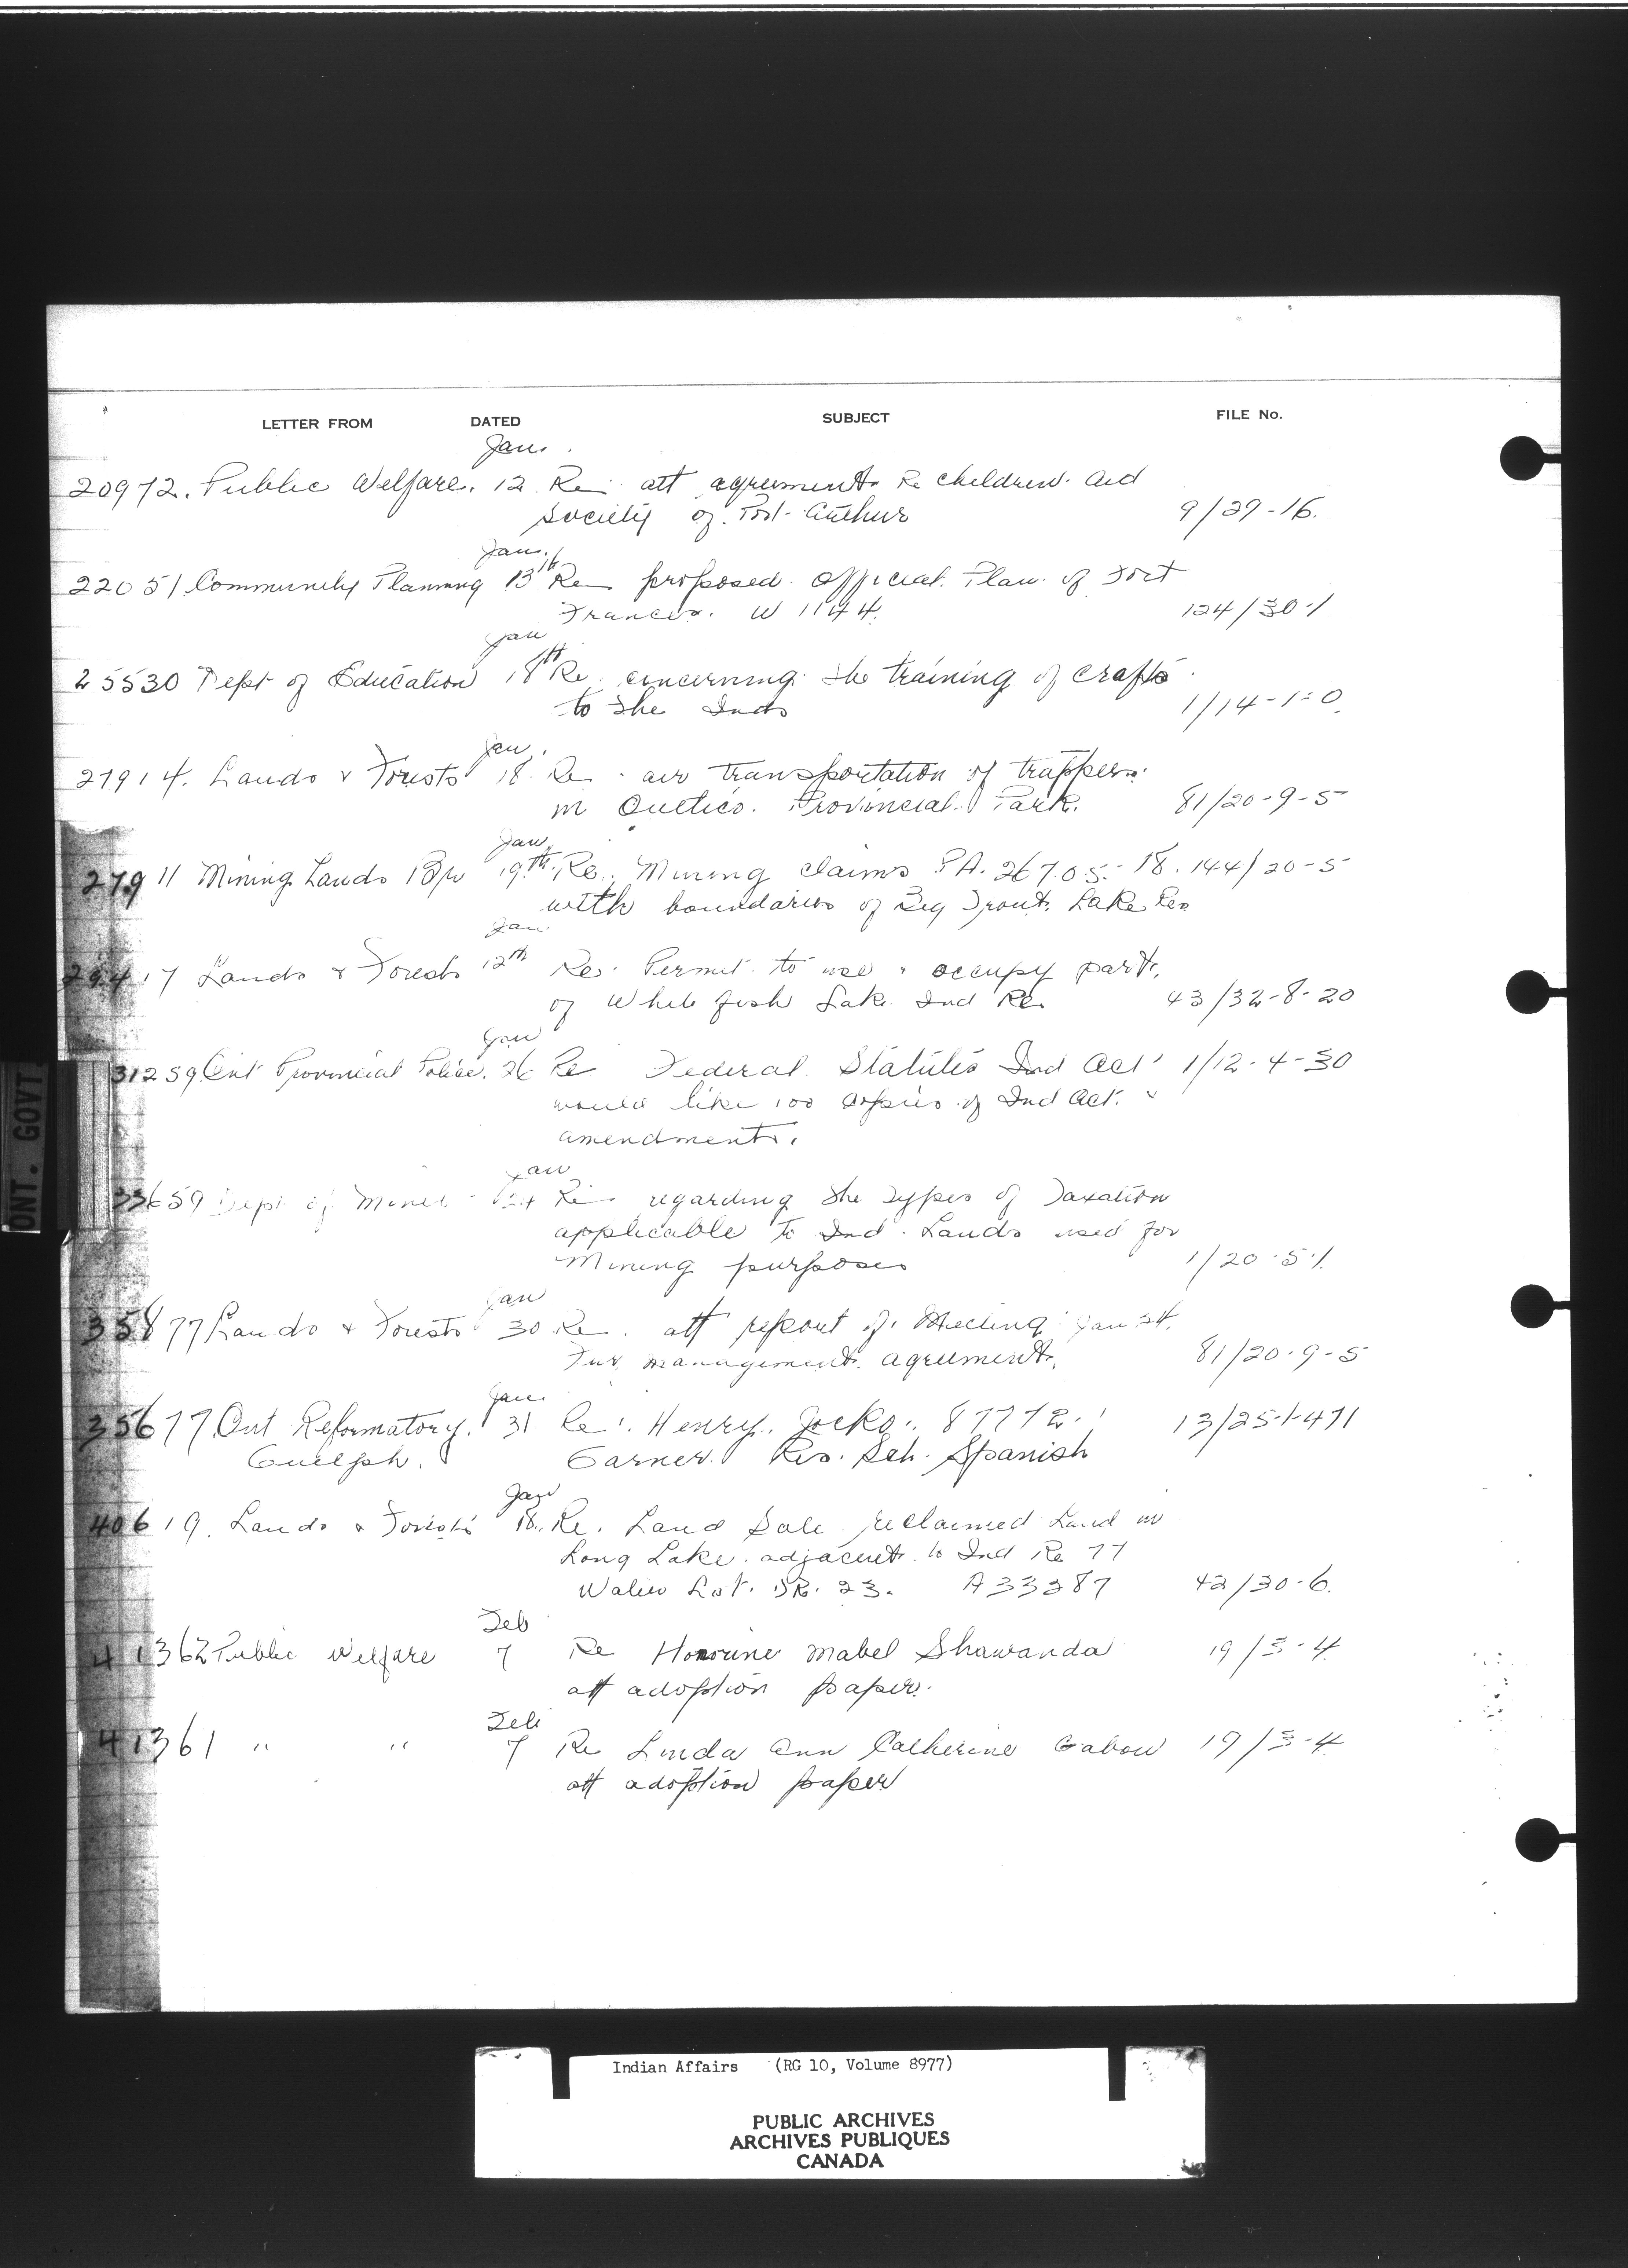 LETTER FROM DATED SUBJECT FILE No.
Jan.
20972. Public Welfare. 12 Re att agreements Re children. Aid
Society of Port Arthur 9/29-16.
Jan.
22051 Community Planning 13th Re proposed official Plan of Fort
Frances. W 1144. 124/30-1
Jan
25530 Dept of Education 18th Re. concerning the training of crafts
to the Inds 1/14-1-0
Jan.
27914. Lands & Forests 18 Re air transportation of trappers
in Quetico Provincial Park. 81/20-9-5
Jan
27911 Mining Lands Br 19th Re. Mining claims P.A. 26705-18. 144/20-5
with boundaries of Big Trout Lake Res
Jan
29417 Lands & Forests 12th Re. Permit to use & occupy part
of White fish Lake Ind Re. 43/32-8-20
Jan
31259 Ont Provincial Police. 26 Re Federal Statutes Ind Act 1/12-4-30
would like 100 copies of Ind Act. &
amendments.
Jan
33659 Dept of Mines 24 Re regarding the types of Taxation
applicable to Ind. Lands used for
Mining purposes 1/20-5-1
Jan
35877 Lands & Forests 30 Re. att report of Meeting Jan 24.
Fur management agreement. 81/20-9-5
Jan.
35677 Ont Reformatory. 31 Re. Henry Jocko. 87772. 13/25-1-471
Guelph. Garner Res. Sch. Spanish
Jan
40619. Lands & Forests 18. Re. Land Sale reclaimed Land in
Long Lake adjacent to Ind Re 77
Water Lot. DR. 23. A33287 42/30-6.
Feb
41362 Public Welfare 7 Re Honorine Mabel Shawanda 19/3-4
att adoption paper.
Feb
41361 " " 7 Re Linda Ann Catherine Gabow 19/3-4
att adoption paper
ONT. GOVT
Indian Affairs (RG 10, Volume 8977)
PUBLIC ARCHIVES
ARCHIVES PUBLIQUES
CANADA